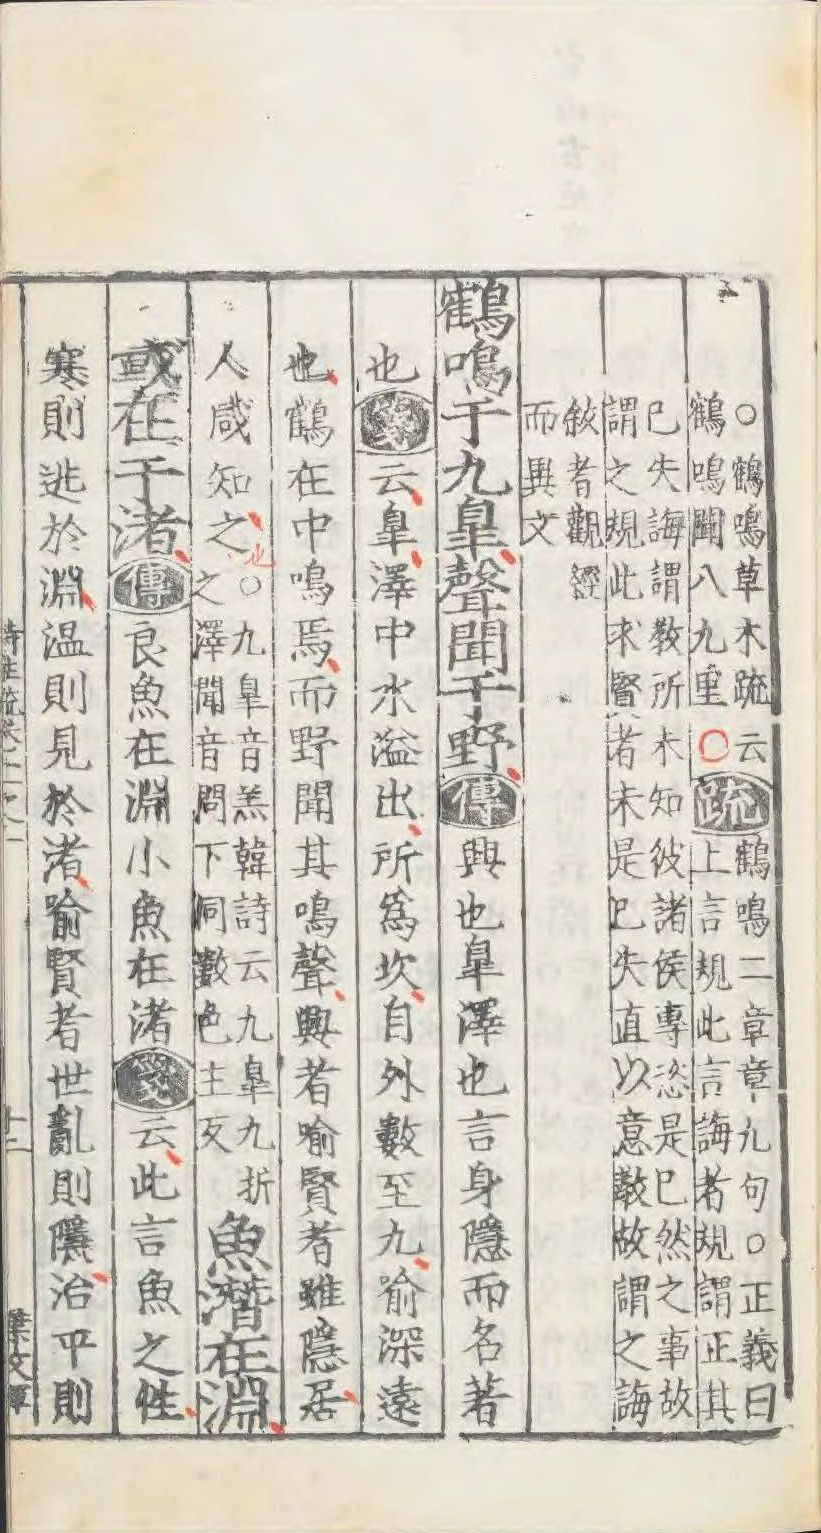 ○鶴鳴草木疏云
鶴鳴聞八九里○
疏
鶴鳴二章章九句○正義曰
上言規此言誨者規謂正其
已失誨謂教所未知彼諸侯專恣是已然之事故
謂之規此求賢者未是已失直以意教故謂之誨
敘者觀經
而異文
鶴鳴于九皐聲聞于野傳興也皐澤也言身隱而名著
也箋云皐澤中水溢出所爲坎自外數至九喻深遠
也鶴在中鳴焉而野聞其鳴聲興者喻賢者雖隱居
人咸知之也○
九皐音羔韓詩云九皐九折
之澤聞音問下同數色主反
魚潛在淵
或在于渚傳良魚在淵小魚在渚箋云此言魚之性
寒則逃於淵溫則見於渚喻賢者世亂則隱治平則
十二
葉文